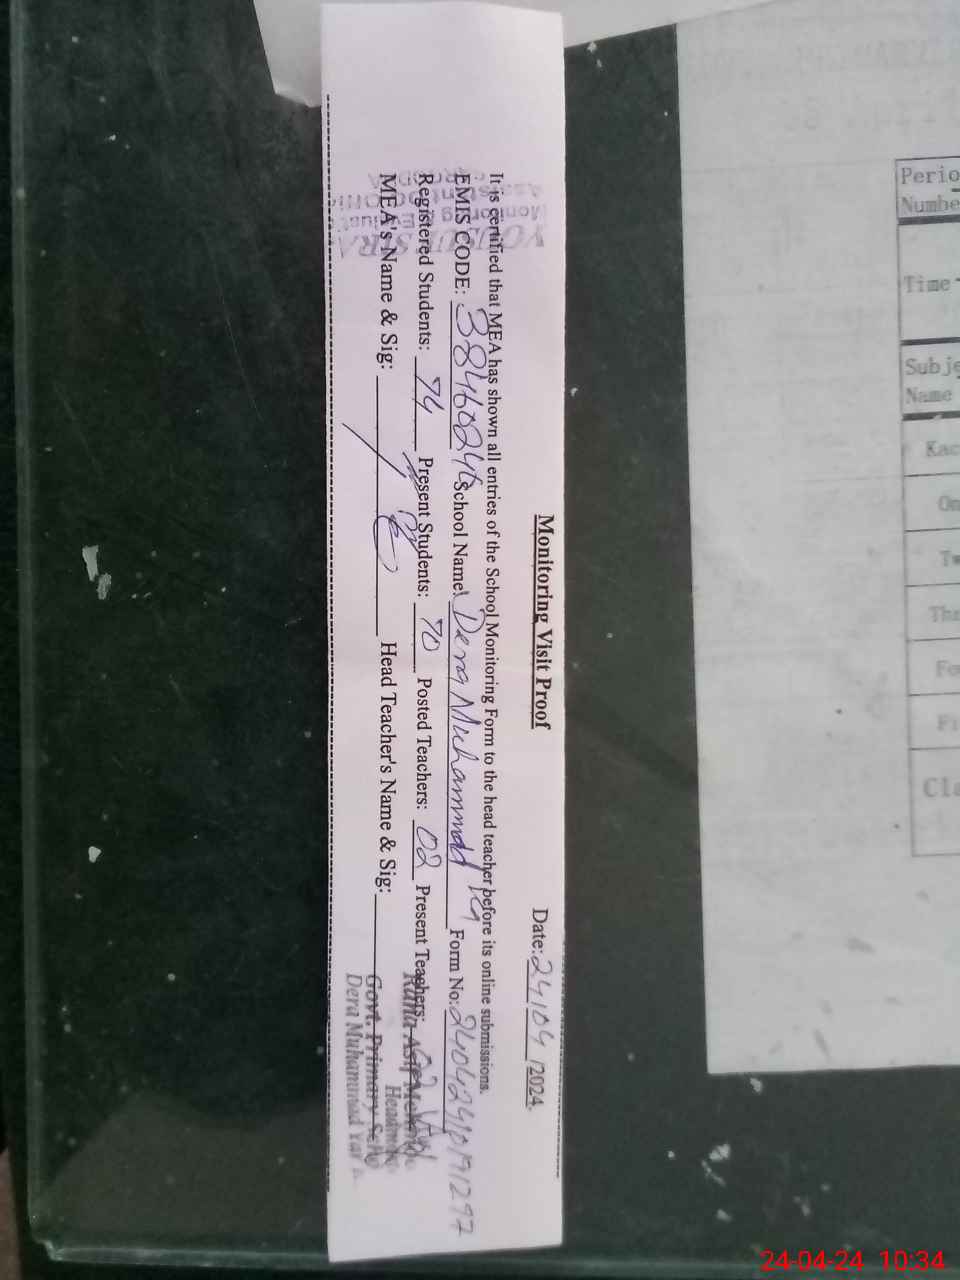 Monitoring Visit Proof
Date: 24/04/2024.
It is certified that MEA has shown all entries of the School Monitoring Form to the head teacher before its online submissions.
EMIS CODE: 38460246 School Name: Dera Muhammad Form No: 2404241019 1297
Registered Students: 74 Present Students: 70 Posted Teachers: 02 Present Teachers:
MEA's Name & Sig: Head Teacher's Name & Sig:
Rana Asif
Govt. Primary
Dera Muhammad Yar
Perio
Numbe
Time
Subje
Name
Kac
On
Tw
Thr
Fo
Fi
Cla
24-04-24 10:34